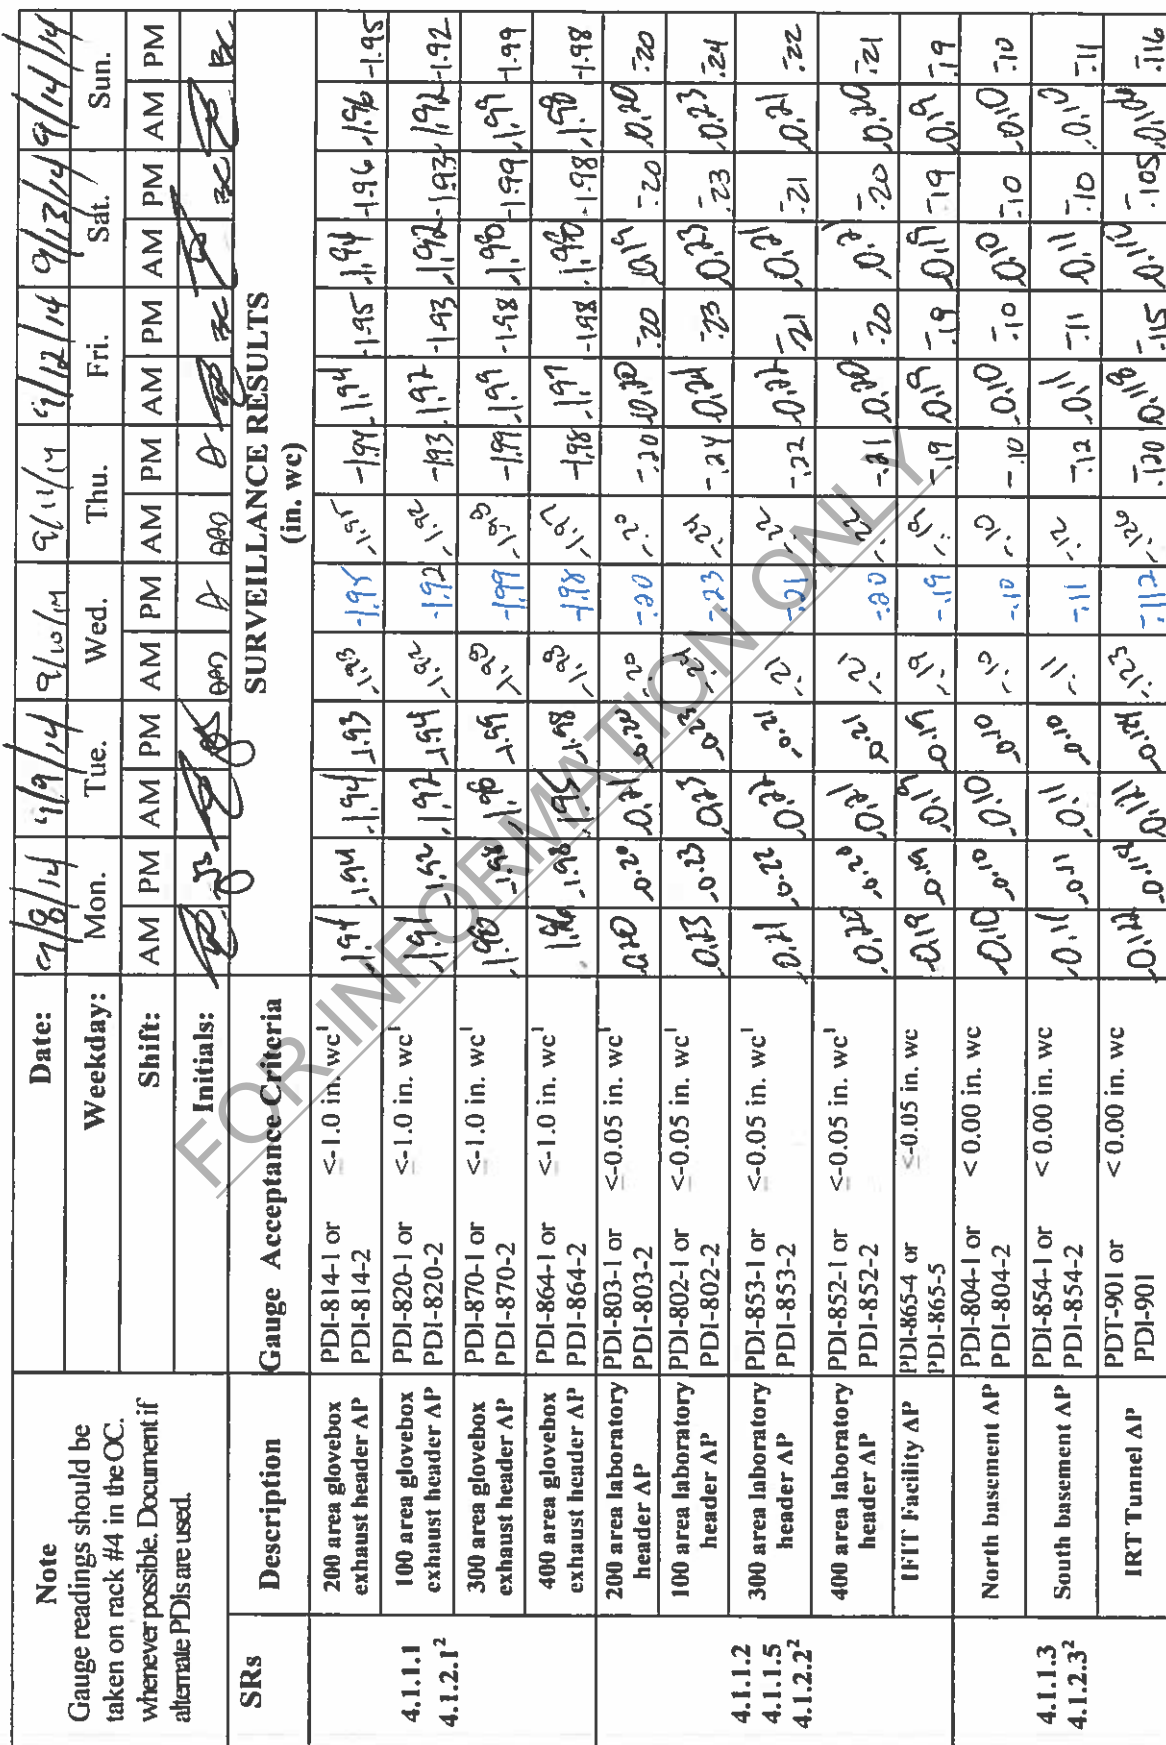 Note
Gauge readings should be
taken on rack #4 in the OC.
whenever possible. Document if
alternate PDIs are used.
Date: 9/8/14 9/9/14 9/10/14 9/11/14 9/12/14 9/13/14 9/14/14
Weekday: Mon. Tue. Wed. Thu. Fri. Sat. Sun.
Shift: AM PM AM PM AM PM AM PM AM PM AM PM AM PM
Initials: BC BC BC
SRs Description Gauge Acceptance Criteria SURVEILLANCE RESULTS
(in. wc)
4.1.1.1
4.1.2.1²
200 area glovebox
exhaust header ΔP
PDI-814-1 or
PDI-814-2
≤-1.0 in. wc¹
-1.94 -1.94 -1.94 -1.93 -1.93 -1.95 -1.95 -1.94 -1.94 -1.95 -1.94 -1.96 -1.96 -1.95
100 area glovebox
exhaust header ΔP
PDI-820-1 or
PDI-820-2
≤-1.0 in. wc¹
-1.91 -1.92 -1.92 -1.94 -1.92 -1.92 -1.92 -1.93 -1.92 -1.93 -1.92 -1.93 -1.92 -1.92
300 area glovebox
exhaust header ΔP
PDI-870-1 or
PDI-870-2
≤-1.0 in. wc¹
-1.98 -1.99 -1.99 -1.99 -1.99 -1.98 -1.99 -1.99 -1.99
400 area glovebox
exhaust header ΔP
PDI-864-1 or
PDI-864-2
≤-1.0 in. wc¹
-1.96 -1.98 -1.95 -1.98 -1.98 -1.97 -1.98 -1.97 -1.98 -1.98 -1.98
4.1.1.2
4.1.1.5
4.1.2.2²
200 area laboratory
header ΔP
PDI-803-1 or
PDI-803-2
≤-0.05 in. wc¹
-0.20 -0.20 -0.21 -.20 -.20 -.20 -.20 -0.20 -.20 -0.19 -.20 -0.20 -.20
100 area laboratory
header ΔP
PDI-802-1 or
PDI-802-2
≤-0.05 in. wc¹
-0.23 -0.23 -0.23 -0.23 -.24 -.23 -.24 -.24 -0.24 -.23 -0.23 -.23 -0.23 -.24
300 area laboratory
header ΔP
PDI-853-1 or
PDI-853-2
≤-0.05 in. wc¹
-0.21 -0.22 -0.22 -0.21 -.21 -.21 -.22 -.22 -0.22 -.21 -0.21 -.21 -0.21 -.22
400 area laboratory
header ΔP
PDI-852-1 or
PDI-852-2
≤-0.05 in. wc¹
-0.20 -0.20 -0.21 -0.21 -.21 -.20 -.22 -.21 -0.20 -.20 -0.21 -.20 -0.20 -.21
PDI-865-4 or
PDI-865-5
≤-0.05 in. wc
-0.19 -0.19 -0.19 -0.19 -.19 -.19 -.19 -.19 -0.19 -.19 -0.19 -.19 -0.19 -.19
4.1.1.3
4.1.2.3²
North basement ΔP
PDI-804-1 or
PDI-804-2
< 0.00 in. wc
-0.10 -0.10 -0.10 -0.10 -.10 -.10 -.10 -.10 -0.10 -.10 -0.10 -.10 -0.10 -.10
South basement ΔP
PDI-854-1 or
PDI-854-2
< 0.00 in. wc
-0.11 -0.11 -0.11 -0.10 -.11 -.11 -.12 -.12 -0.11 -.11 -0.11 -.10 -0.10 -.11
IRT Tunnel ΔP
PDT-901 or
PDI-901
< 0.00 in. wc
-0.121 -0.124 -.123 -.112 -.126 -.120 -0.118 -.115 -.105 -.116
FOR INFORMATION ONLY